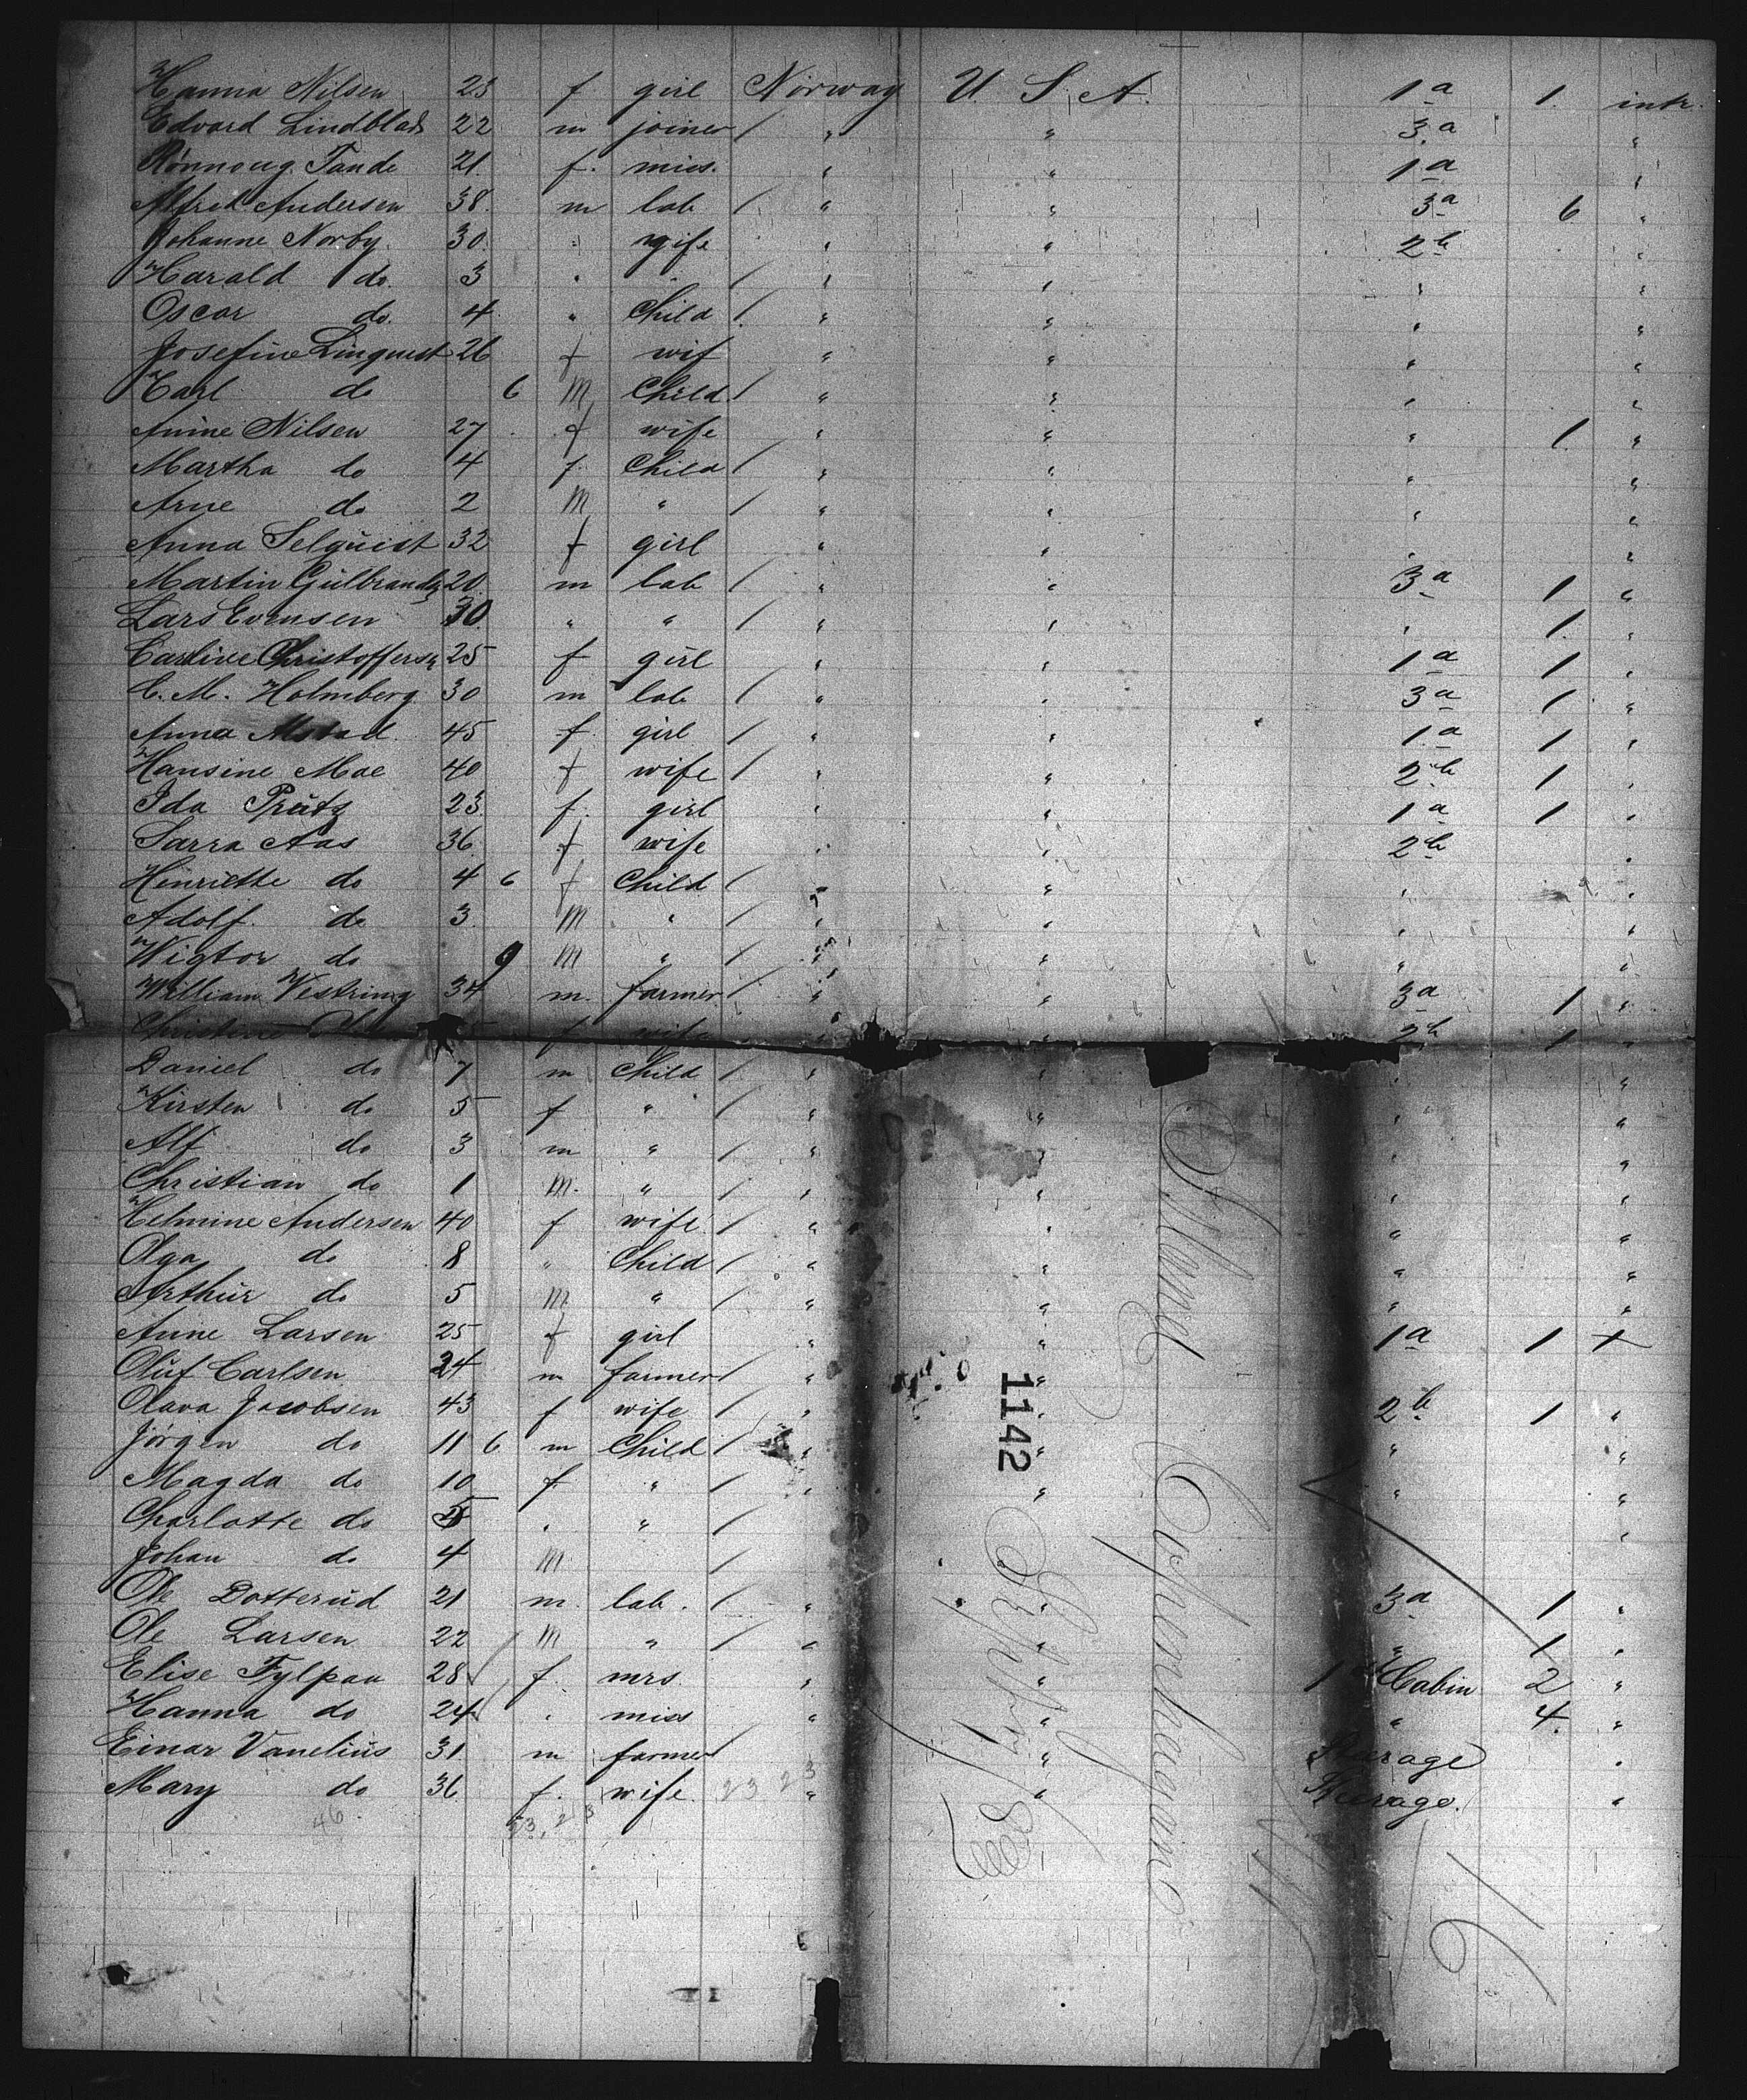 Hanna Nilsen 23 f girl Norway U. S. A. 1a 1. intr.
Edvard Lindblad 22 m joiner / " " 3a "
Rönnoug Tande 21. f. miss. " " 1a "
Alfred Andersen 38. m lab / " " 3a 6 "
Johanne Norby. 30. " wife " " 2b "
Harald do. 3 " " / " " " "
Oscar do. 4 " Child / " " " "
Josefine Linquest 26 f wif " " " "
Carl do 6 m Child / " " " "
Anine Nilsen 27 f wife " " " 1. "
Martha do 4 f. Child / " " " "
Arne do 2 m " / " " " "
Anna Selquist 32 f girl " " " "
Martin Gulbrands 20. m lab / " " 3a 1 "
Lars Evensen 30. " " / " " " 1. "
Carline Christoffersn 25 f girl " " 1a 1 "
C. M. Holmberg 30 m lab / " " 3a 1 "
Anna 45 f. girl / " " 1a 1 "
Hansine Moe 40 f wife / " " 2b 1 "
Ida Prütz 23. f. girl " " 1a 1 "
Sarra Aas 36 f wife " " 2b "
Henriette do 4 6 f Child / " " " "
Adolf. do 3 m " / " " " "
Wigtor do 9 m " / " " " "
William Vestring 34 m. farmer / " " 3a 1 "
Christine f wife " " 2b 1 "
Daniel do 7 m Child / " " " "
Kirsten do 5 f " / " " " "
Alf do 3 m " / " " " "
Christian do 1 m. " / " " " "
Helmine Andersen 40 f wife / " " " "
Olga do 8 " Child / " " " "
Arthur do 5 m " / " " " "
Anne Larsen 25 f girl " " 1a 1 +
Oluf Carlsen 24 m farmer / " "
Olava Jacobsen 43 f wife / " " 2b 1 "
Jörgen do 11 6 m Child / " " " "
Magda do 10 f " / " " " "
Charlotte do 5 " " / "
Johan do 4 m /
Ole Dotterud 21 m. lab. / " " 3a 1 "
Ole Larsen 22 m " / " " " 1 "
Elise Fylpaa 28 f. mrs. " " 1 Cabin 2 "
Hanna do 24 " miss " " " 4. "
Einar Vanelius 31 m farmer " Steerage "
Mary do 36 f. wife 23 23 " " Steerage. "
46 23, 23
Island
Copenhagen
1142
16